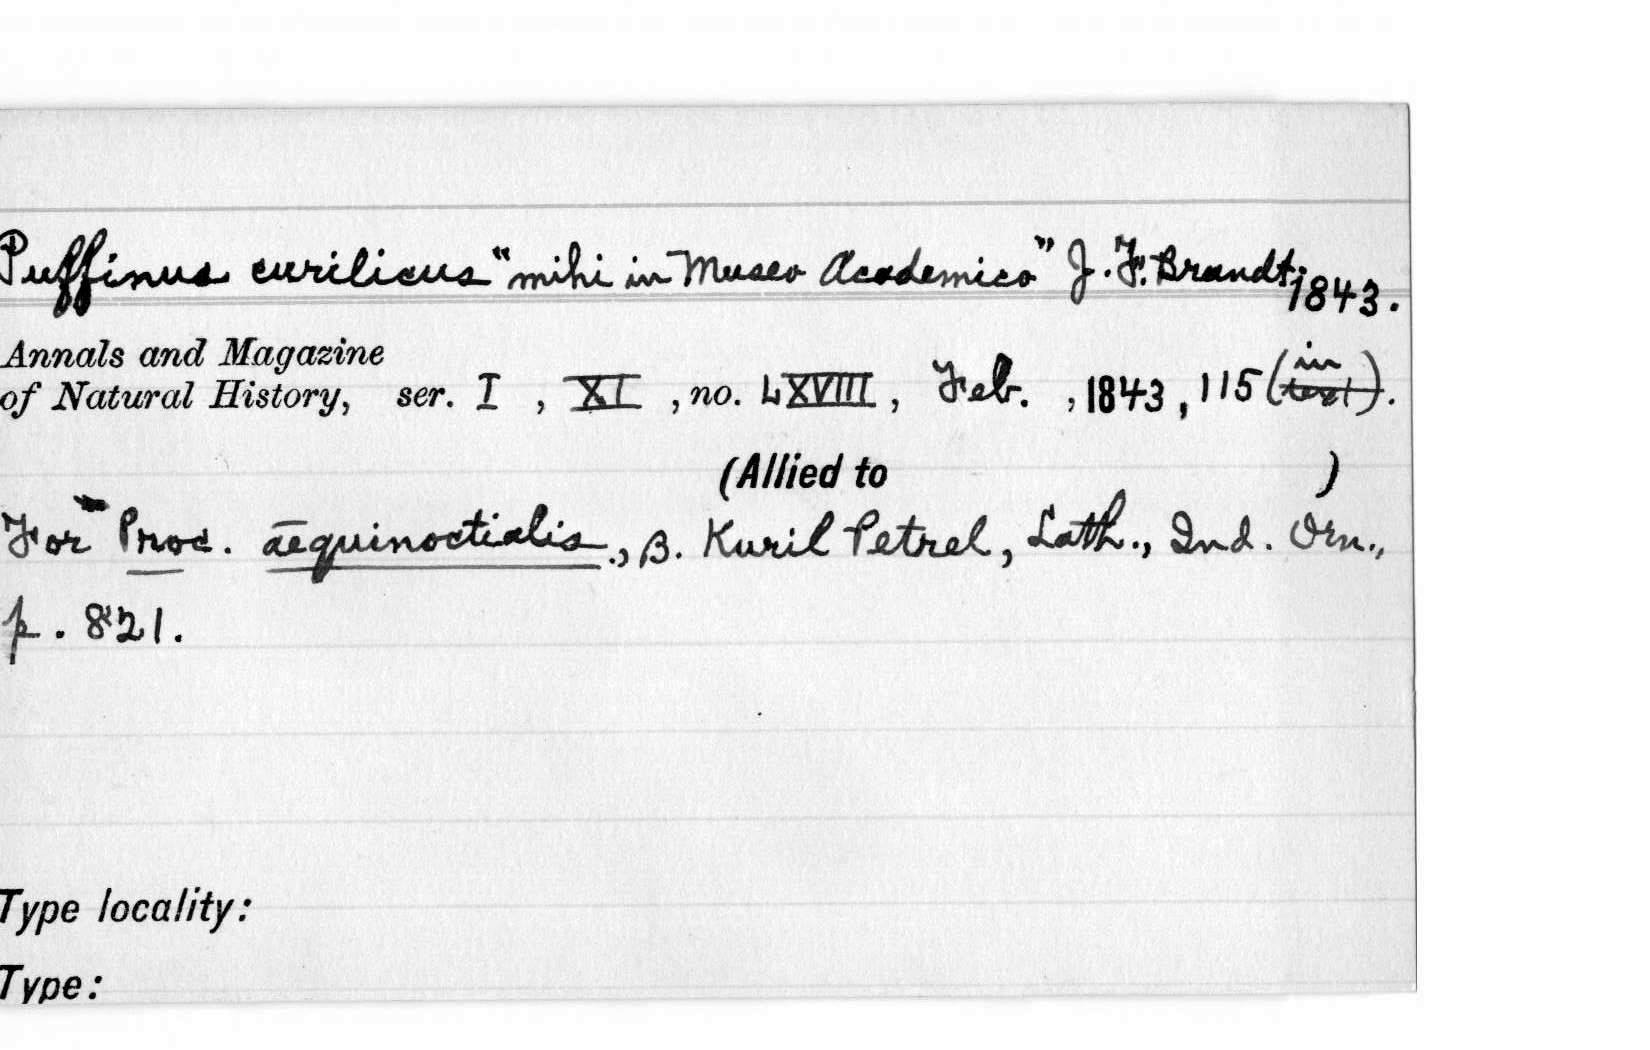 Puffinus curilicus "mihi in Museo Academico" J. F. Brandt, 1843.
Annals and Magazine
of Natural History, ser. I, XI, no. LXVIII, Feb., 1843, 115 (in text).
(Allied to )
For Proc. aequinoctialis., B. Kuril Petrel, Lath., Ind. Orn.,
p. 821.
Type locality:
Type: